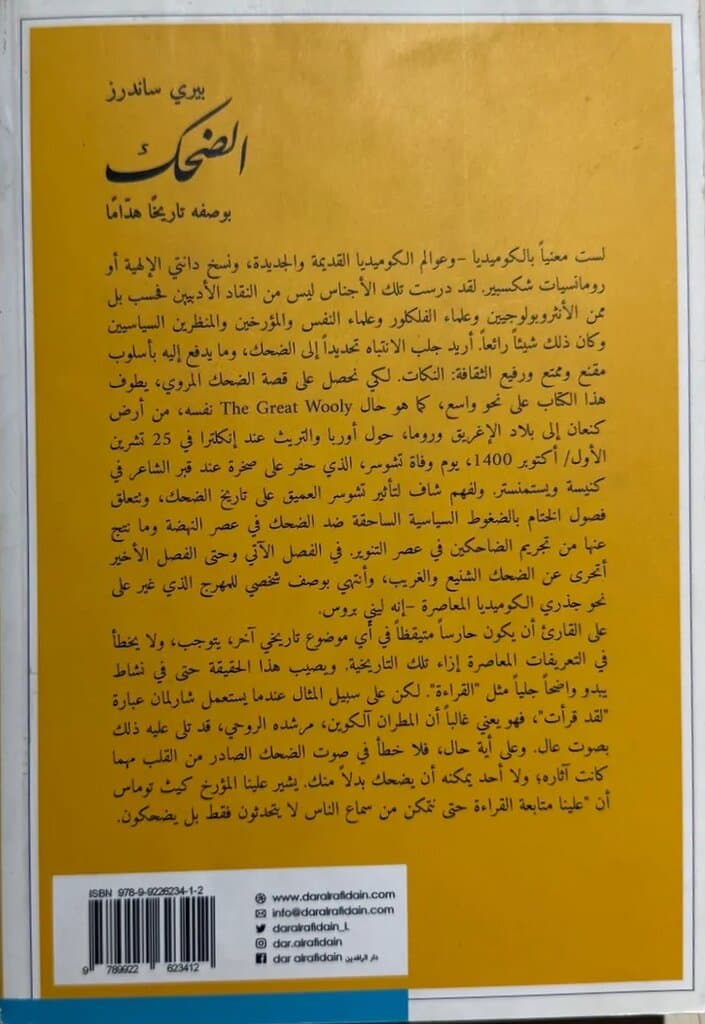 بيري ساندرز
الضحك
بوصفه تاريخًا هدّامًا
لست معنياً بالكوميديا -وعوالم الكوميديا القديمة والجديدة، ونسخ دانتي الإلهية أو
رومانسيات شكسبير. لقد درست تلك الأجناس ليس من النقاد الأدبيين فحسب بل
ممن الأنثروبولوجيين وعلماء الفلكلور وعلماء النفس والمؤرخين والمنظرين السياسيين
وكان ذلك شيئاً رائعاً. أريد جلب الانتباه تحديداً إلى الضحك، وما يدفع إليه بأسلوب
مقنع وممتع ورفيع الثقافة: النكات. لكي نحصل على قصة الضحك المروي، يطوف
هذا الكتاب على نحو واسع، كما هو حال The Great Wooly نفسه، من أرض
كنعان إلى بلاد الإغريق وروما، حول أوربا والتريث عند إنكلترا في 25 تشرين
الأول/ أكتوبر 1400، يوم وفاة تشوسر، الذي حفر على صخرة عند قبر الشاعر في
كنيسة ويستمنستر. ولفهم شاف لتأثير تشوسر العميق على تاريخ الضحك، وتتعلق
فصول الختام بالضغوط السياسية الساحقة ضد الضحك في عصر النهضة وما نتج
عنها من تجريم الضاحكين في عصر التنوير. في الفصل الآتي وحتى الفصل الأخير
أتحرى عن الضحك الشنيع والغريب، وأنتهي بوصف شخصي للمهرج الذي غير على
نحو جذري الكوميديا المعاصرة -إنه ليني بروس.
على القارئ أن يكون حارساً متيقظاً في أي موضوع تاريخي آخر، يتوجب، ولا يخطأ
في التعريفات المعاصرة إزاء تلك التاريخية. ويصيب هذا الحقيقة حتى في نشاط
يبدو واضحاً جلياً مثل "القراءة". لكن على سبيل المثال عندما يستعمل شارلمان عبارة
"لقد قرأت"، فهو يعني غالباً أن المطران آلكوين، مرشده الروحي، قد تلى عليه ذلك
بصوت عال. وعلى أية حال، فلا خطأ في صوت الضحك الصادر من القلب مهما
كانت آثاره؛ ولا أحد يمكنه أن يضحك بدلاً منك. يشير علينا المؤرخ كيث توماس
أن "علينا متابعة القراءة حتى نتمكن من سماع الناس لا يتحدثون فقط بل يضحكون.
ISBN 978-9-9226234-1-2
9 789922 623412
www.daralrafidain.com
info@daralrafidain.com
daralrafidain_L
dar.alrafidain
dar alrafidain دار الرافدين